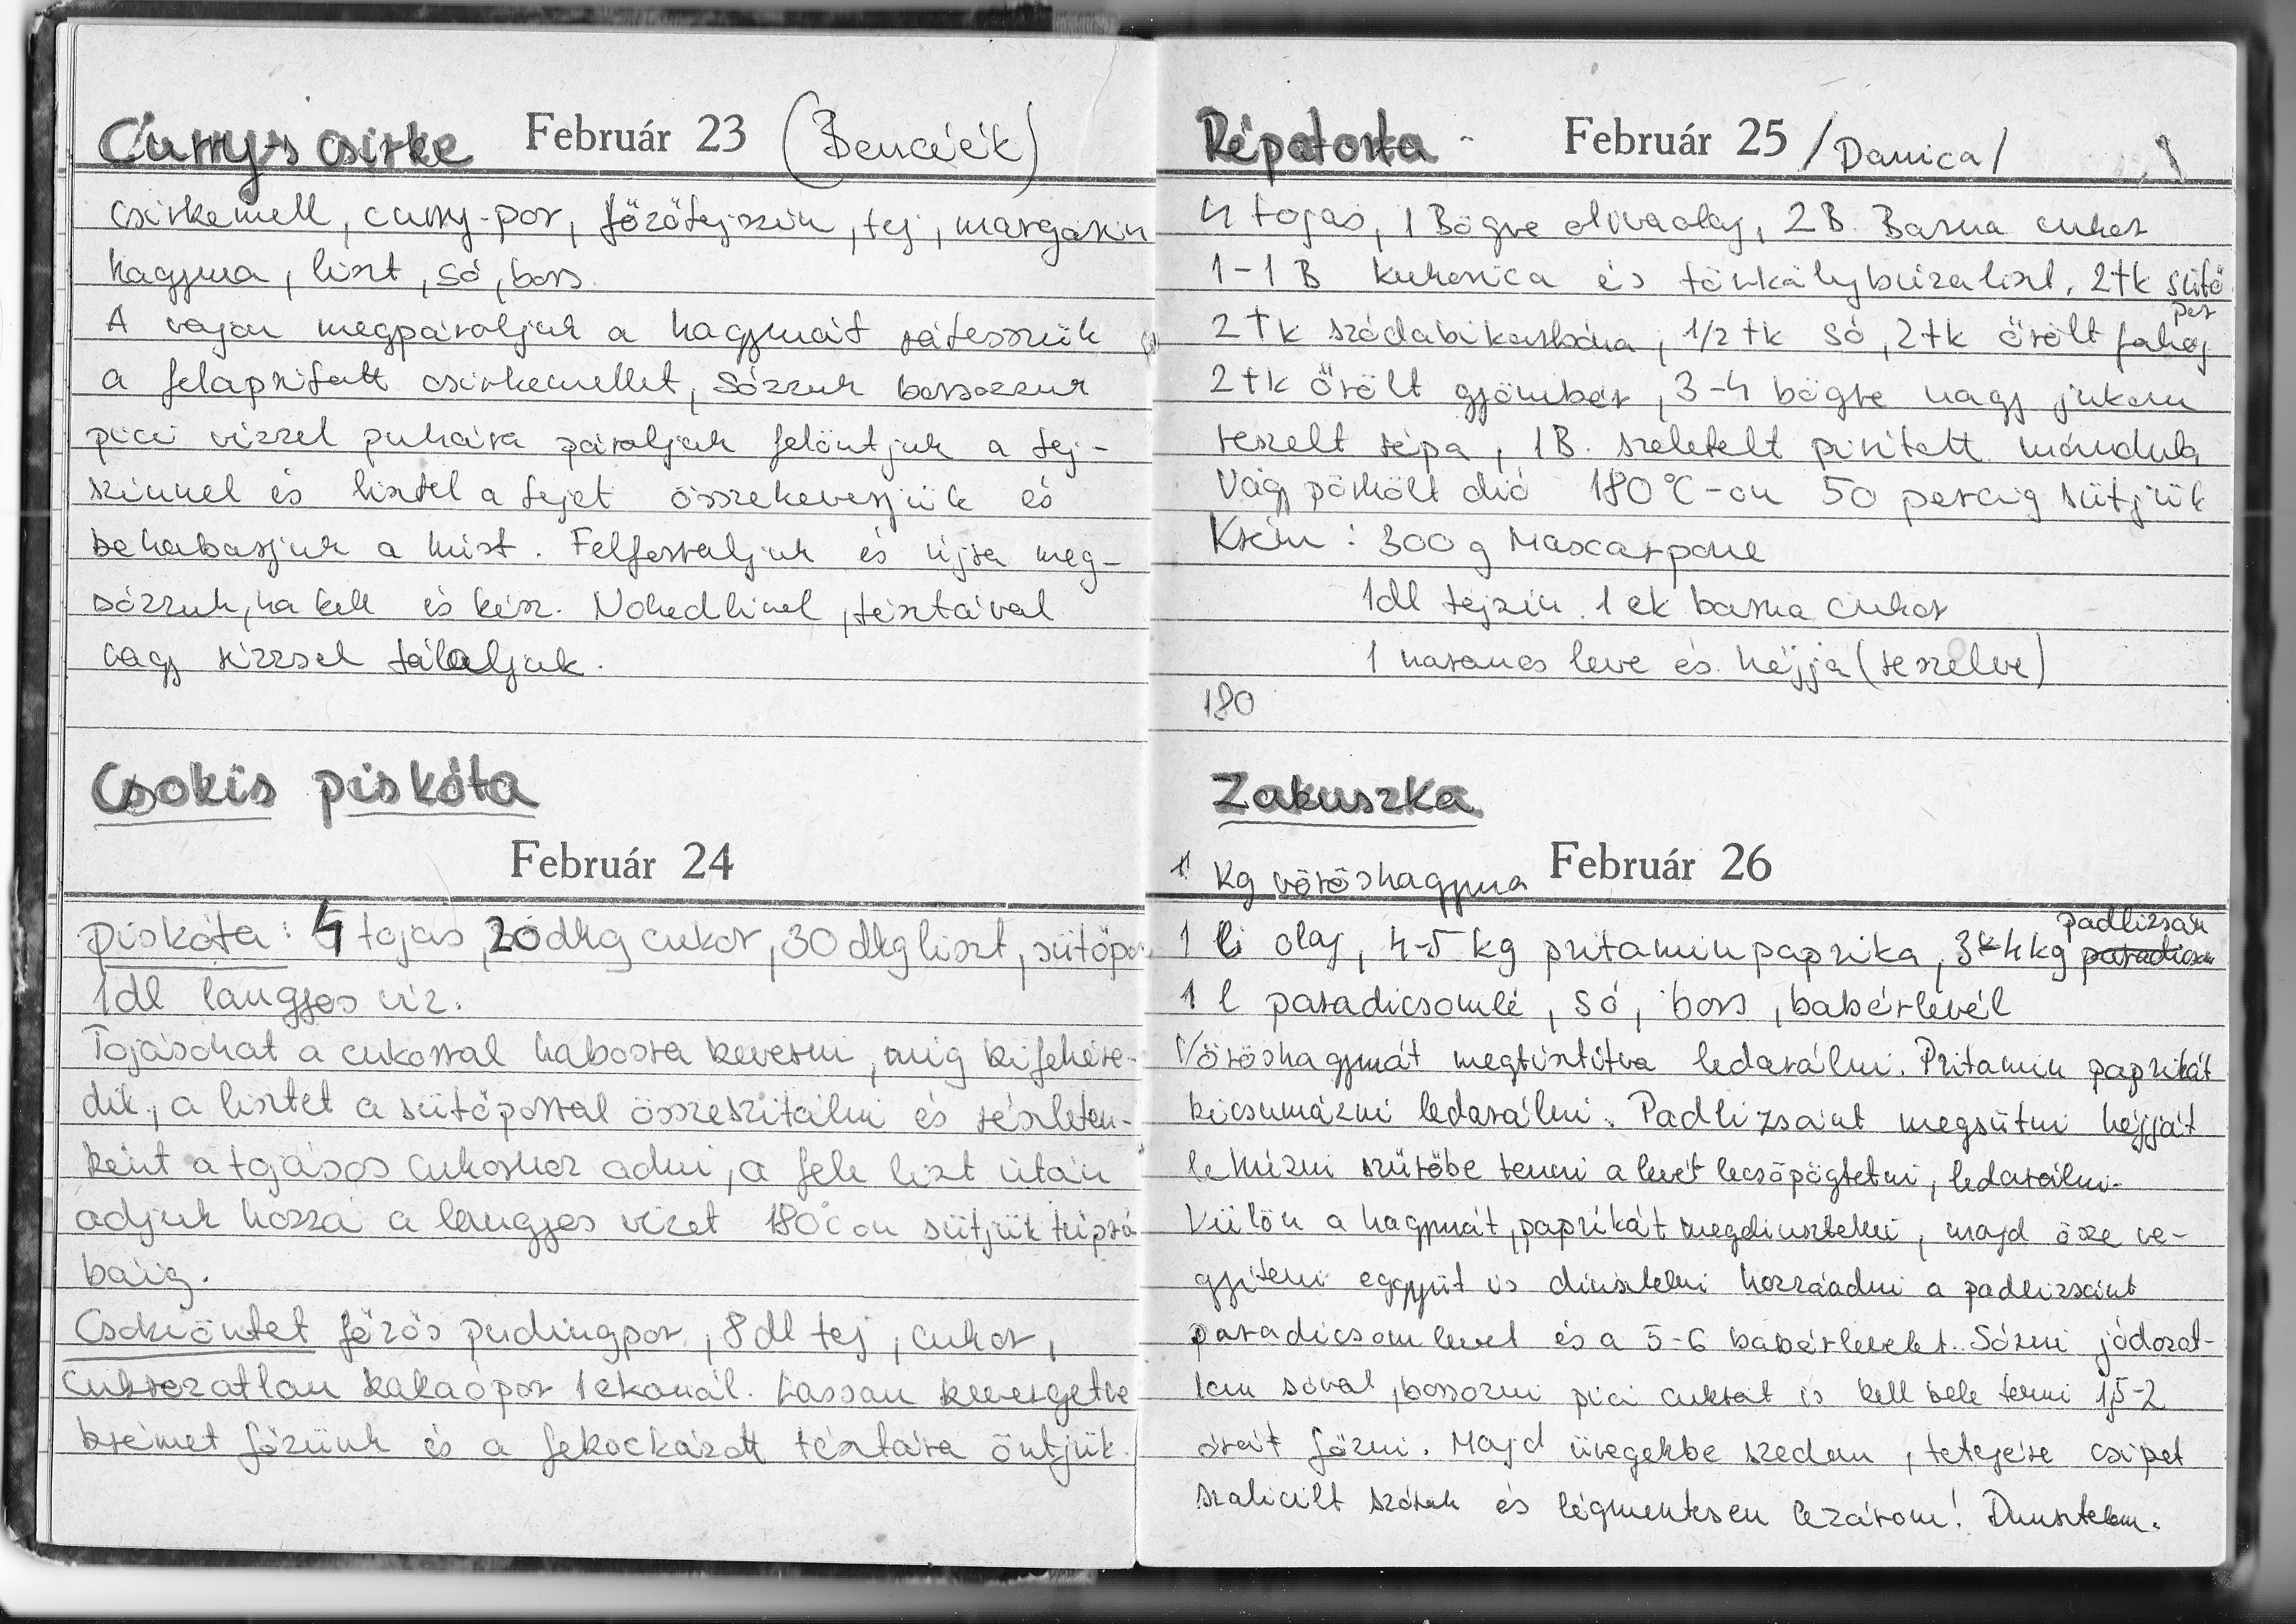 Curry-s csirke Február 23 (Bencéék)
csirkemell, curry-por, főzőtejszin, tej, margarin
hagyma, liszt, só, bors.
A vajon megpároljuk a hagymát rátesszük
a felaprított csirkemellet, sózzuk borsozzuk
pici vizzel puhára pároljuk felöntjük a tej-
szinnel és liztel a tejet összekeverjük és
behabarjuk a húst. Felforraljuk és újra meg-
sózzuk, ha kell és kész. Nokedlivel, tésztával
vagy rizzsel tálaljuk.
Csokis piskóta
Február 24
Piskóta: 4 tojás, 20 dkg cukor, 30 dkg liszt, sütőpor
1dl langyos viz.
Tojásokat a cukorral habosra keverni, mig kifehére-
dik, a lisztet a sütőporral összeszitálni és részleten-
ként a tojásos cukorhoz adni, a fele liszt után
adjuk hozzá a langyos vizet 180°C on sütjük tűpró
báig.
Csokiöntet főzős pudingpor, 8 dl tej, cukor,
cukrozatlan kakaópor 1 ekanál. Lassan kevergetve
krémet főzünk és a fekockázott tésztára öntjük.
Répatorta - Február 25 /Danica/
4 tojás, 1 Bögre olivaolaj, 2 B. Barna cukor
1-1 B kukorica és tönkálybúzaliszt, 2tk sütő
por
2 tk szódabikarbóna, 1/2 tk só, 2tk őrölt fahéj
2tk őrölt gyömbér, 3-4 bögre nagy jukon
reszelt répa, 1B. szeletelt piritott mandula
Vagy pörkölt dió 180°C-on 50 percig sütjük
Krém: 300 g Mascarpone
1dl tejszin 1 ek barna cukor
1 narancs leve és héjja (reszelve)
180
Zakuszka
1 kg vöröshagyma Február 26
padlizsán
1 li olaj, 4-5 kg pritaminpaprika, 3-4 kg paradicsom
1 l paradicsomlé, só, bors, babérlevél
Vöröshagymát megtisztítva ledarálni. Pritamin paprikát
kicsumázni ledarálni. Padlizsánt megsütni héjját
lehúzni szűrőbe tenni a levét lecsöpögtetni, ledarálni.
Külön a hagymát, paprikát megdinsztelni, majd össze ve-
gyíteni eggyüt is dinsztelni hozzáadni a padlizsánt
paradicsom levet és a 5-6 babérlevelet. Sózni jódozat-
lan sóval, borsozni pici cukrot is kell bele tenni 1,5-2
órát főzni. Majd üvegekbe szedem, tetejére csipet
szalicilt szórok és légmentesen lezárom! Dunsztolom.